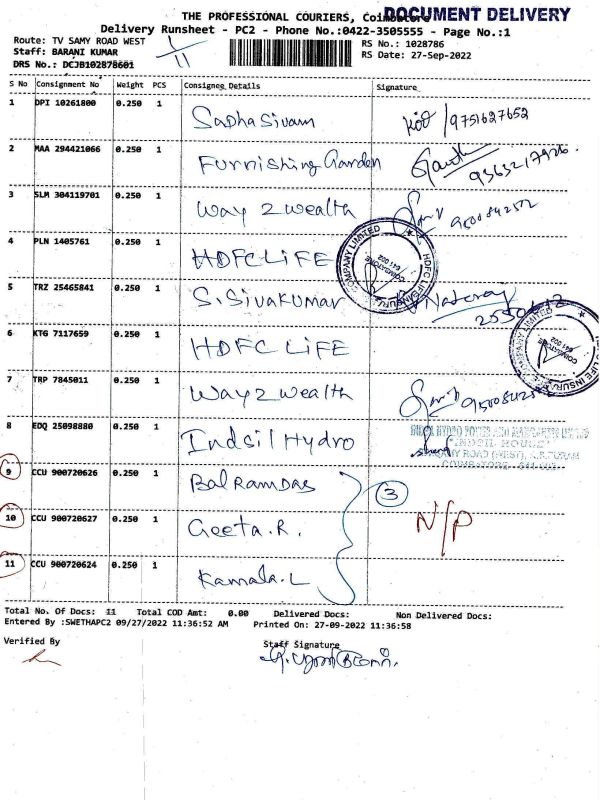 THE PROFESSIONAL COURIERS, Coimbatore
DOCUMENT DELIVERY
Delivery Runsheet - PC2 - Phone No.:0422-3505555 - Page No.:1
Route: TV SAMY ROAD WEST 1/11 RS No.: 1028786
Staff: BARANI KUMAR RS Date: 27-Sep-2022
DRS No.: DCJB102878601
S No Consignment No Weight PCS Consignee Details Signature
1 DPI 10261800 0.250 1 Sadhasivam 9751627652
2 MAA 294421066 0.250 1 Furnishing Garden
3 SLM 304119701 0.250 1 Way 2 Wealth
4 PLN 1405761 0.250 1 HDFC LIFE
HDFC LIFE INSURANCE COMPANY LIMITED COIMBATORE 641 002
5 TRZ 25465841 0.250 1 S. Sivakumar
6 KTG 7117659 0.250 1 HDFC LIFE
COMPANY LIMITED COIMBATORE 641 002
7 TRP 7845011 0.250 1 Way 2 Wealth
8 EDQ 25098880 0.250 1 Indsil Hydro
"INDSIL HOUSE"
ROAD (WEST), R.S.PURAM
COIMBATORE - 641 002
9 CCU 900720626 0.250 1 BalRamDas 3
10 CCU 900720627 0.250 1 Geeta. R. N/P
11 CCU 900720624 0.250 1 Kamala. L
Total No. Of Docs: 11 Total COD Amt: 0.00 Delivered Docs: Non Delivered Docs:
Entered By :SWETHAPC2 09/27/2022 11:36:52 AM Printed On: 27-09-2022 11:36:58
Verified By Staff Signature